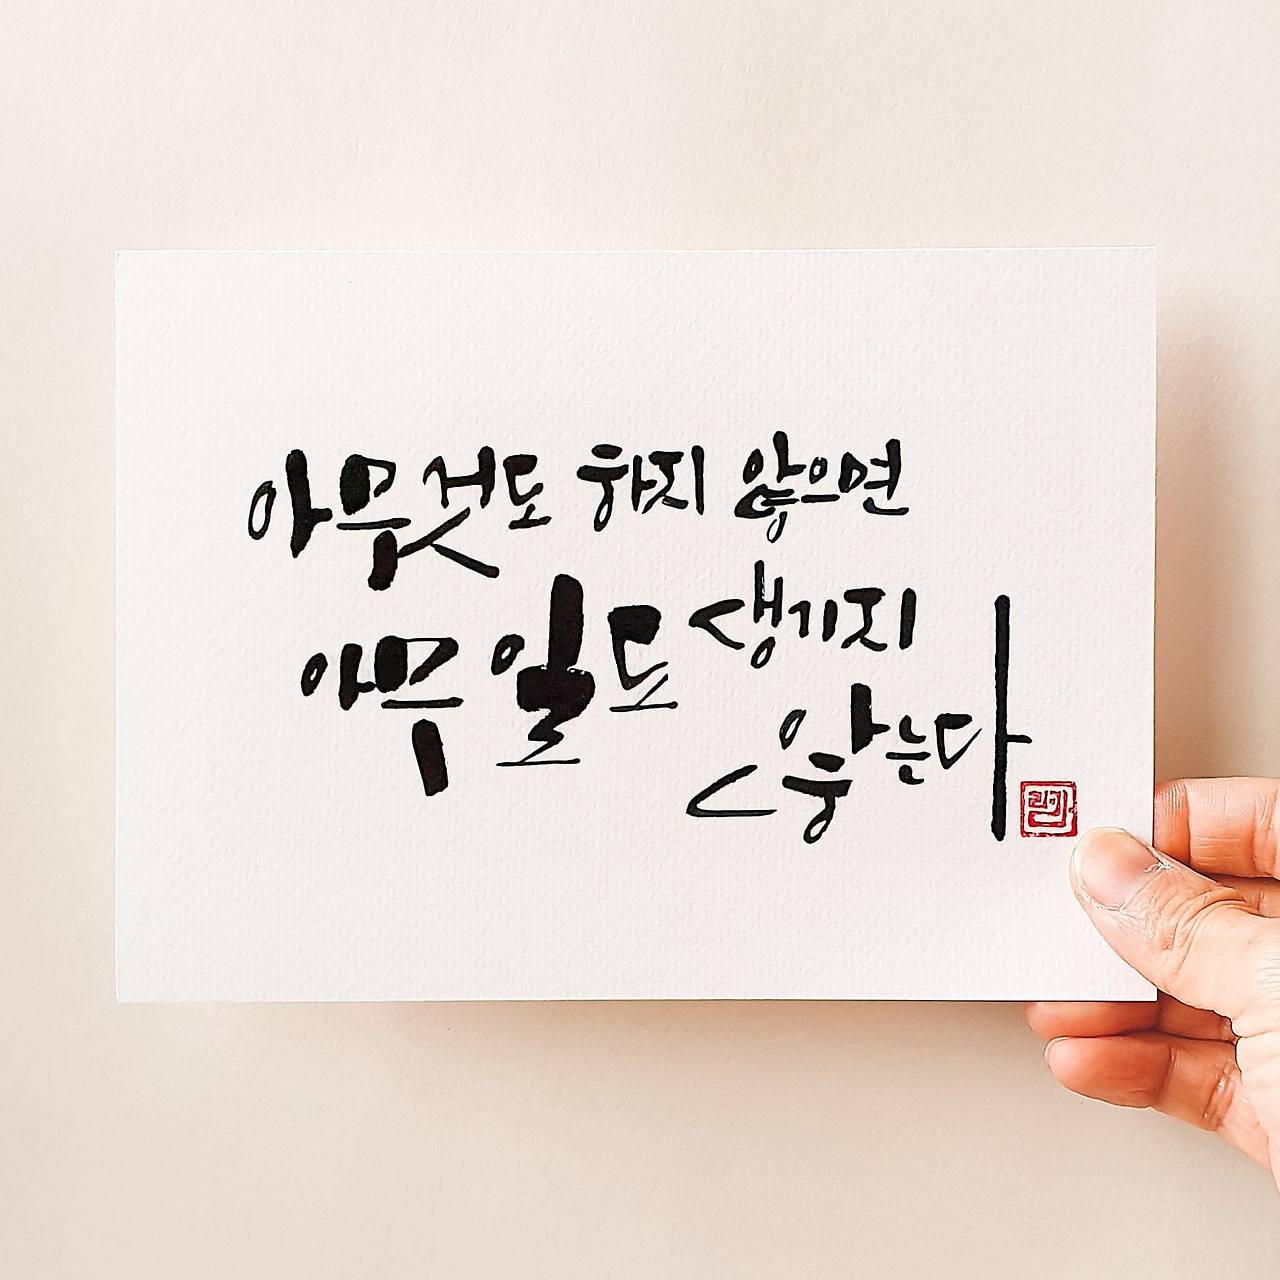 아무것도 하지 않으면
아무 일도 생기지
않는다